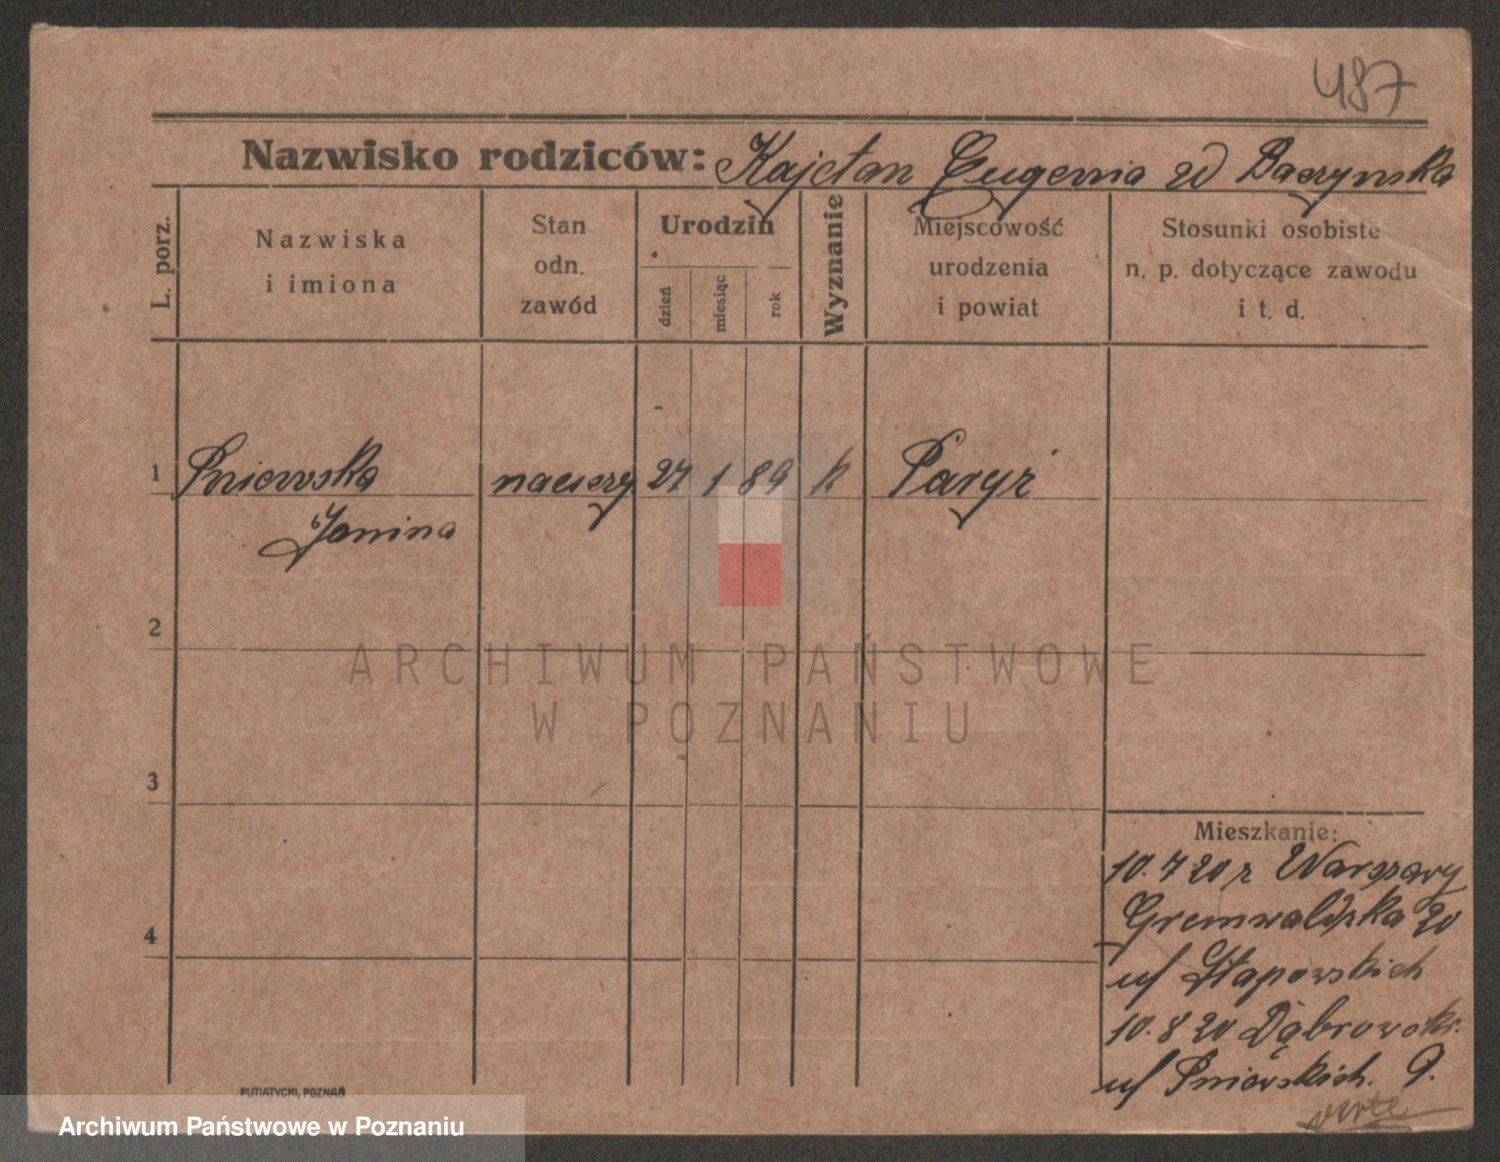 487
Nazwisko rodziców: Kajetan Eugenia zd Baczynska
L. porz.
Nazwiska
i imiona
Stan
odn.
zawód
Urodzin
dzień
miesiąc
rok
Wyznanie
Miejscowość
urodzenia
i powiat
Stosunki osobiste
n. p. dotyczące zawodu
i t. d.
1 Pniewska nauczy 27 1 89 k Paryż
Janina
2
ARCHIWUM PAŃSTWOWE
W POZNANIU
3
Mieszkanie:
10.7 20 z Warszawy
Grunwaldzka 20
u/ Słapowskich
4
10.8 20 Dąbrowsk.
u/ Pniewskich. 9.
verte
PUTIATYCKI, POZNAŃ
Archiwum Państwowe w Poznaniu